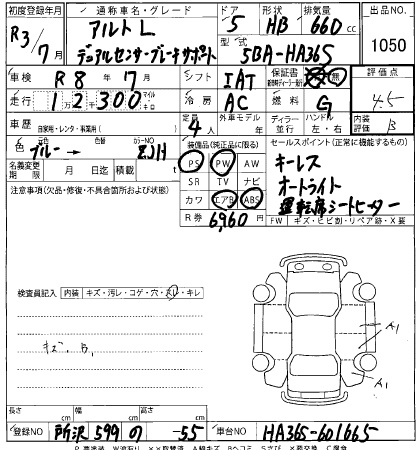 初度登録年月 通称車名・グレード ドア 形状 排気量 出品NO
R3/7月 アルトL デュアルセンサーブレーキサポート 5 HB 660cc 1050
型式 5BA-HA36S
車検 R8年7月 シフト IAT 保証書 無 評価点
走行 12300 マイル キロ 冷房 AC 燃料 G 4.5
車歴 自家用・レンタ・事業用( ) 定員 4人 外車モデル 年 ディーラー 並行 ハンドル 左・右 内装評価 B
色 元色 ブルー→ 色 カラーNO ZJH
装備品(純正品に限る) セールスポイント(正常に機能するもの)
名義変更期限 月 日迄 積載 t
PS PW AW キーレス
注意事項(欠品・修復・不具合箇所および状態)
SR TV ナビ オートライト
カワ エアB ABS 運転席シートヒーター
R券 6,960円 FW キズ・ヒビ割・リペア跡・X要
検査員記入 内装 キズ・汚レ・コゲ・穴・スレ・キレ
キズ、B,
A1
A1
長さ cm 幅 cm 高さ cm
登録NO 所沢 599 の -55 車台NO HA36S-601665